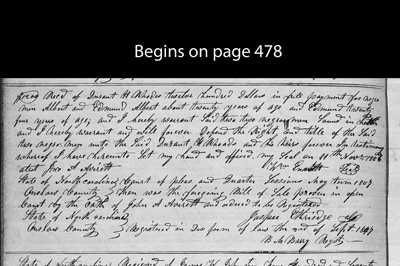 Begins on page 478
Recd of Durant H Rhodes twelve hundred Dollars in full payment for negro
men Albert and Edmund Albert about twenty years of age and Edmund twenty
four years of age, and I hereby warrant said two negro men Sound in health
and I hereby warrant and will forever Defend the Right and title of the Said
two negro men unto the Said Durant H Rhodes and his heirs forever In testimony
whereof I have hereunto Set my hand and affixed my Seal on 11th
attest John A Averett Wm Seal
State of North Carolina Court of pleas and Quarter Sessions May term 1847
Onslow County Then was the foregoing Bill of Sale proven in open
Court by the Oath of John A Averett and ordered to be Registered
State of North Carolina Jasper Etheridge Clk
Onslow County Registered in due form of law the 2nd of Sept 1847